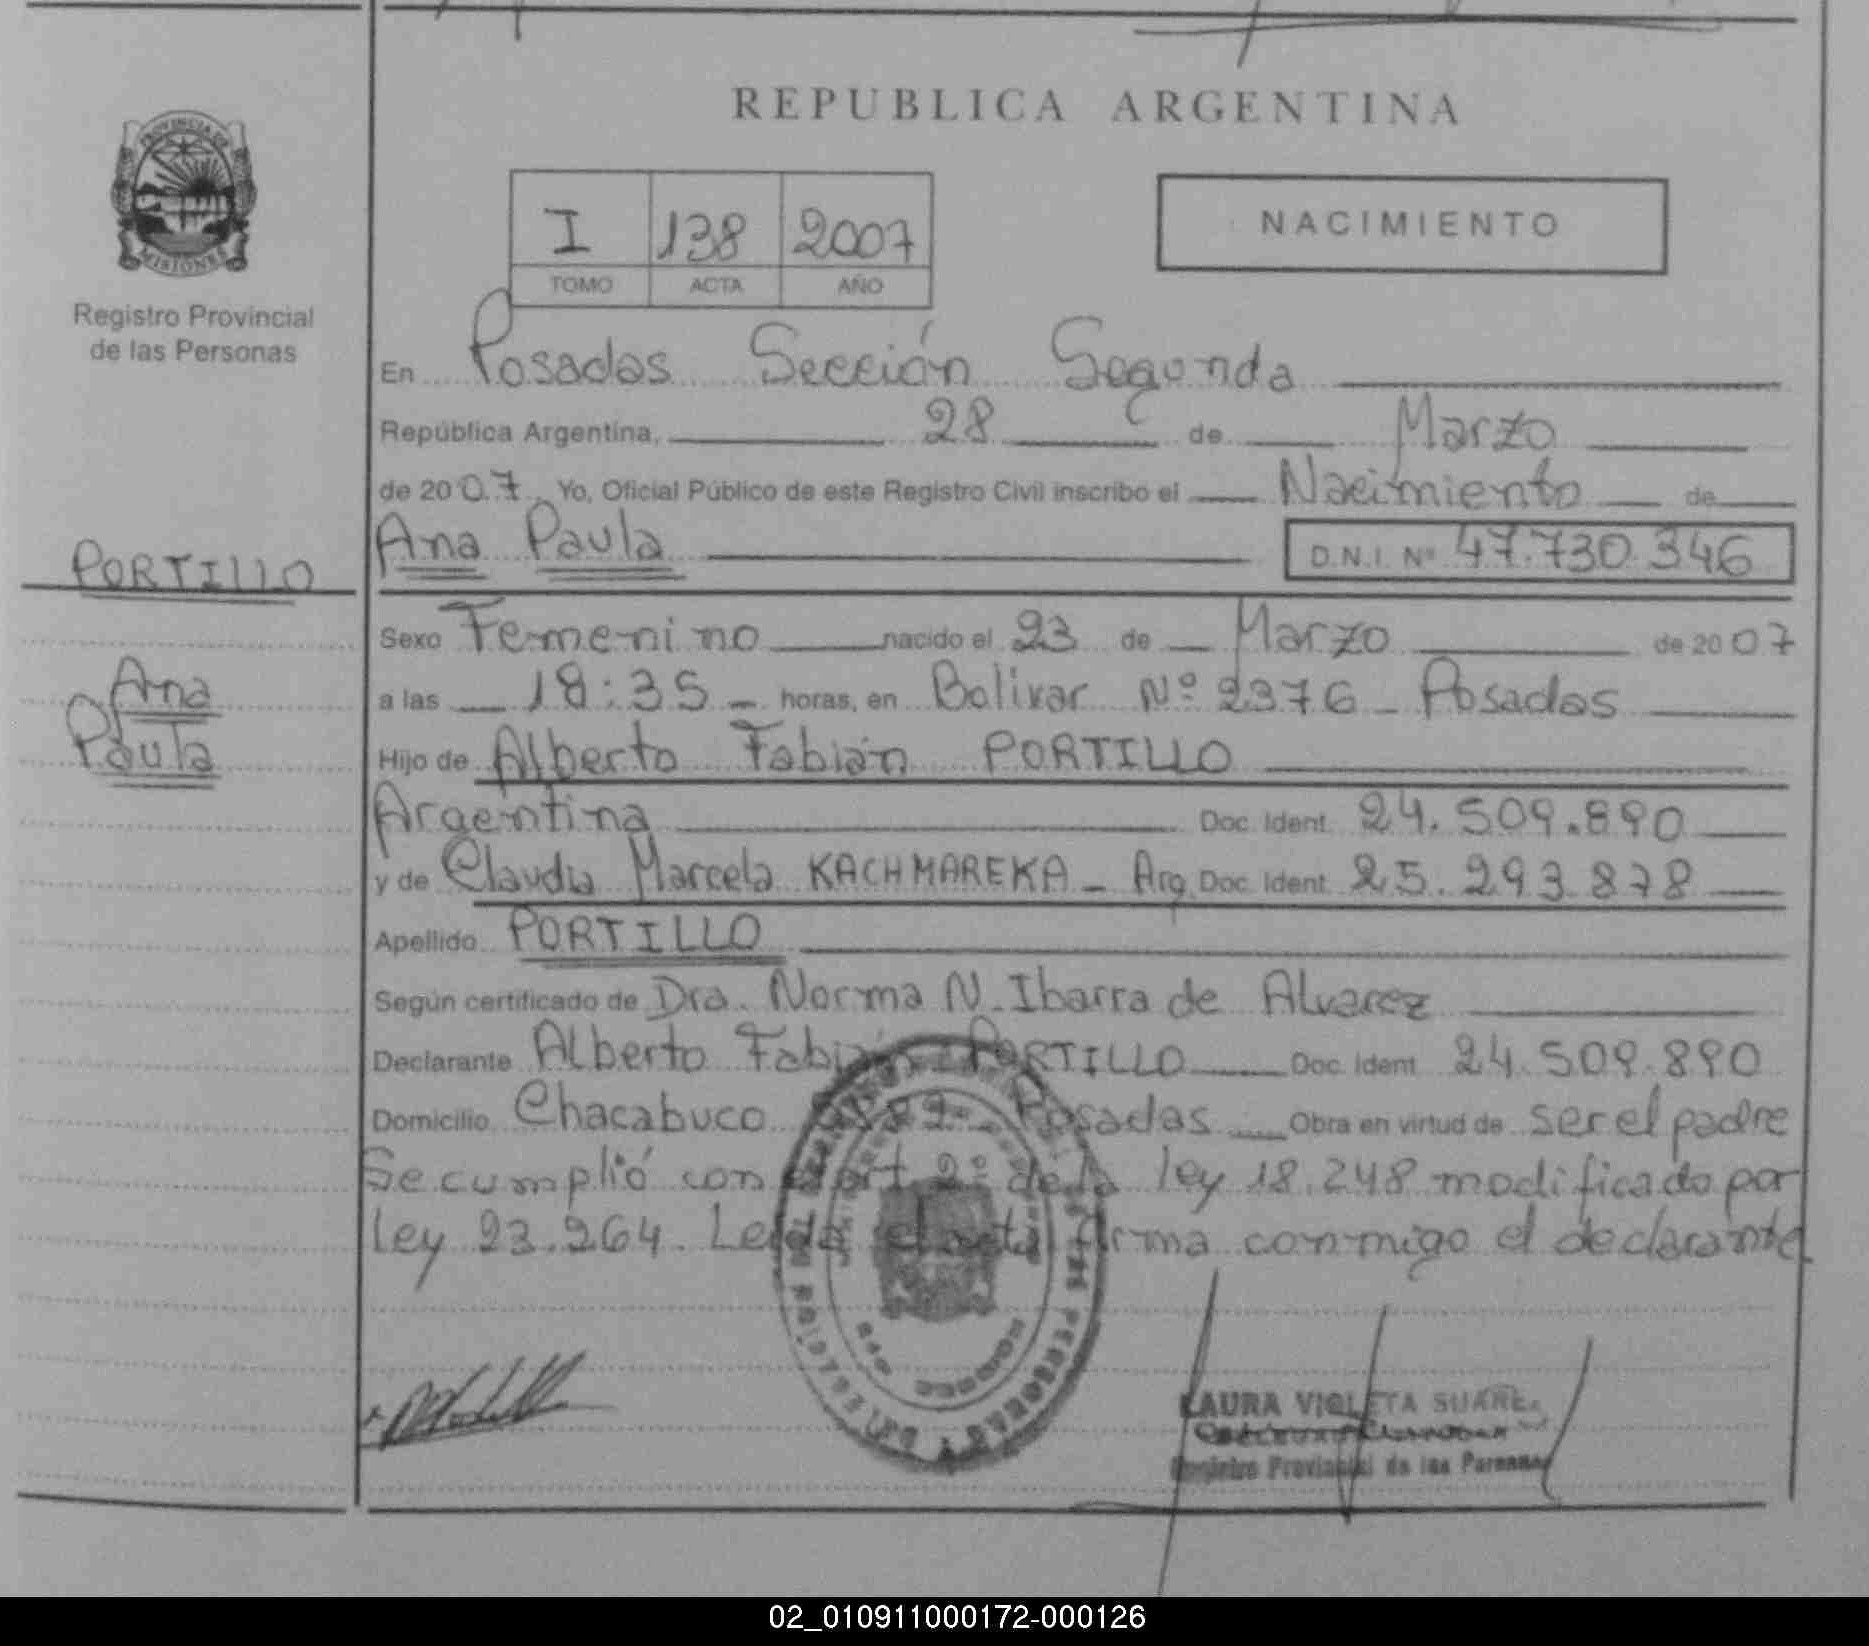 REPUBLICA ARGENTINA
PROVINCIA DE
MISIONES
Registro Provincial
de las Personas
I 138 2007
TOMO ACTA AÑO
NACIMIENTO
En Posadas Sección Segunda
República Argentina, 28 de Marzo
de 2007. Yo, Oficial Público de este Registro Civil inscribo el Nacimiento de
Ana Paula D.N.I. Nº 47.730.346
PORTILLO
Ana
Paula
Sexo Femenino nacido el 23 de Marzo de 2007
a las 18:35 horas, en Bolivar Nº 2376 - Posadas
Hijo de Alberto Fabián PORTILLO
Argentina Doc. Ident. 24.509.890
y de Claudia Marcela KACHMAREKA - Arg. Doc. Ident. 25.293.878
Apellido PORTILLO
Según certificado de Dra. Norma N. Ibarra de Alvarez
Declarante Alberto Fabián PORTILLO Doc. Ident. 24.509.890
Domicilio Chacabuco Posadas Obra en virtud de ser el padre
Se cumplió con el art 2º de la ley 18.248 modificado por
ley 23.264. Leida el acta firma conmigo el declarante
LAURA VIOLETA SUARE
Registro Provincial de las Personas
02_010911000172-000126